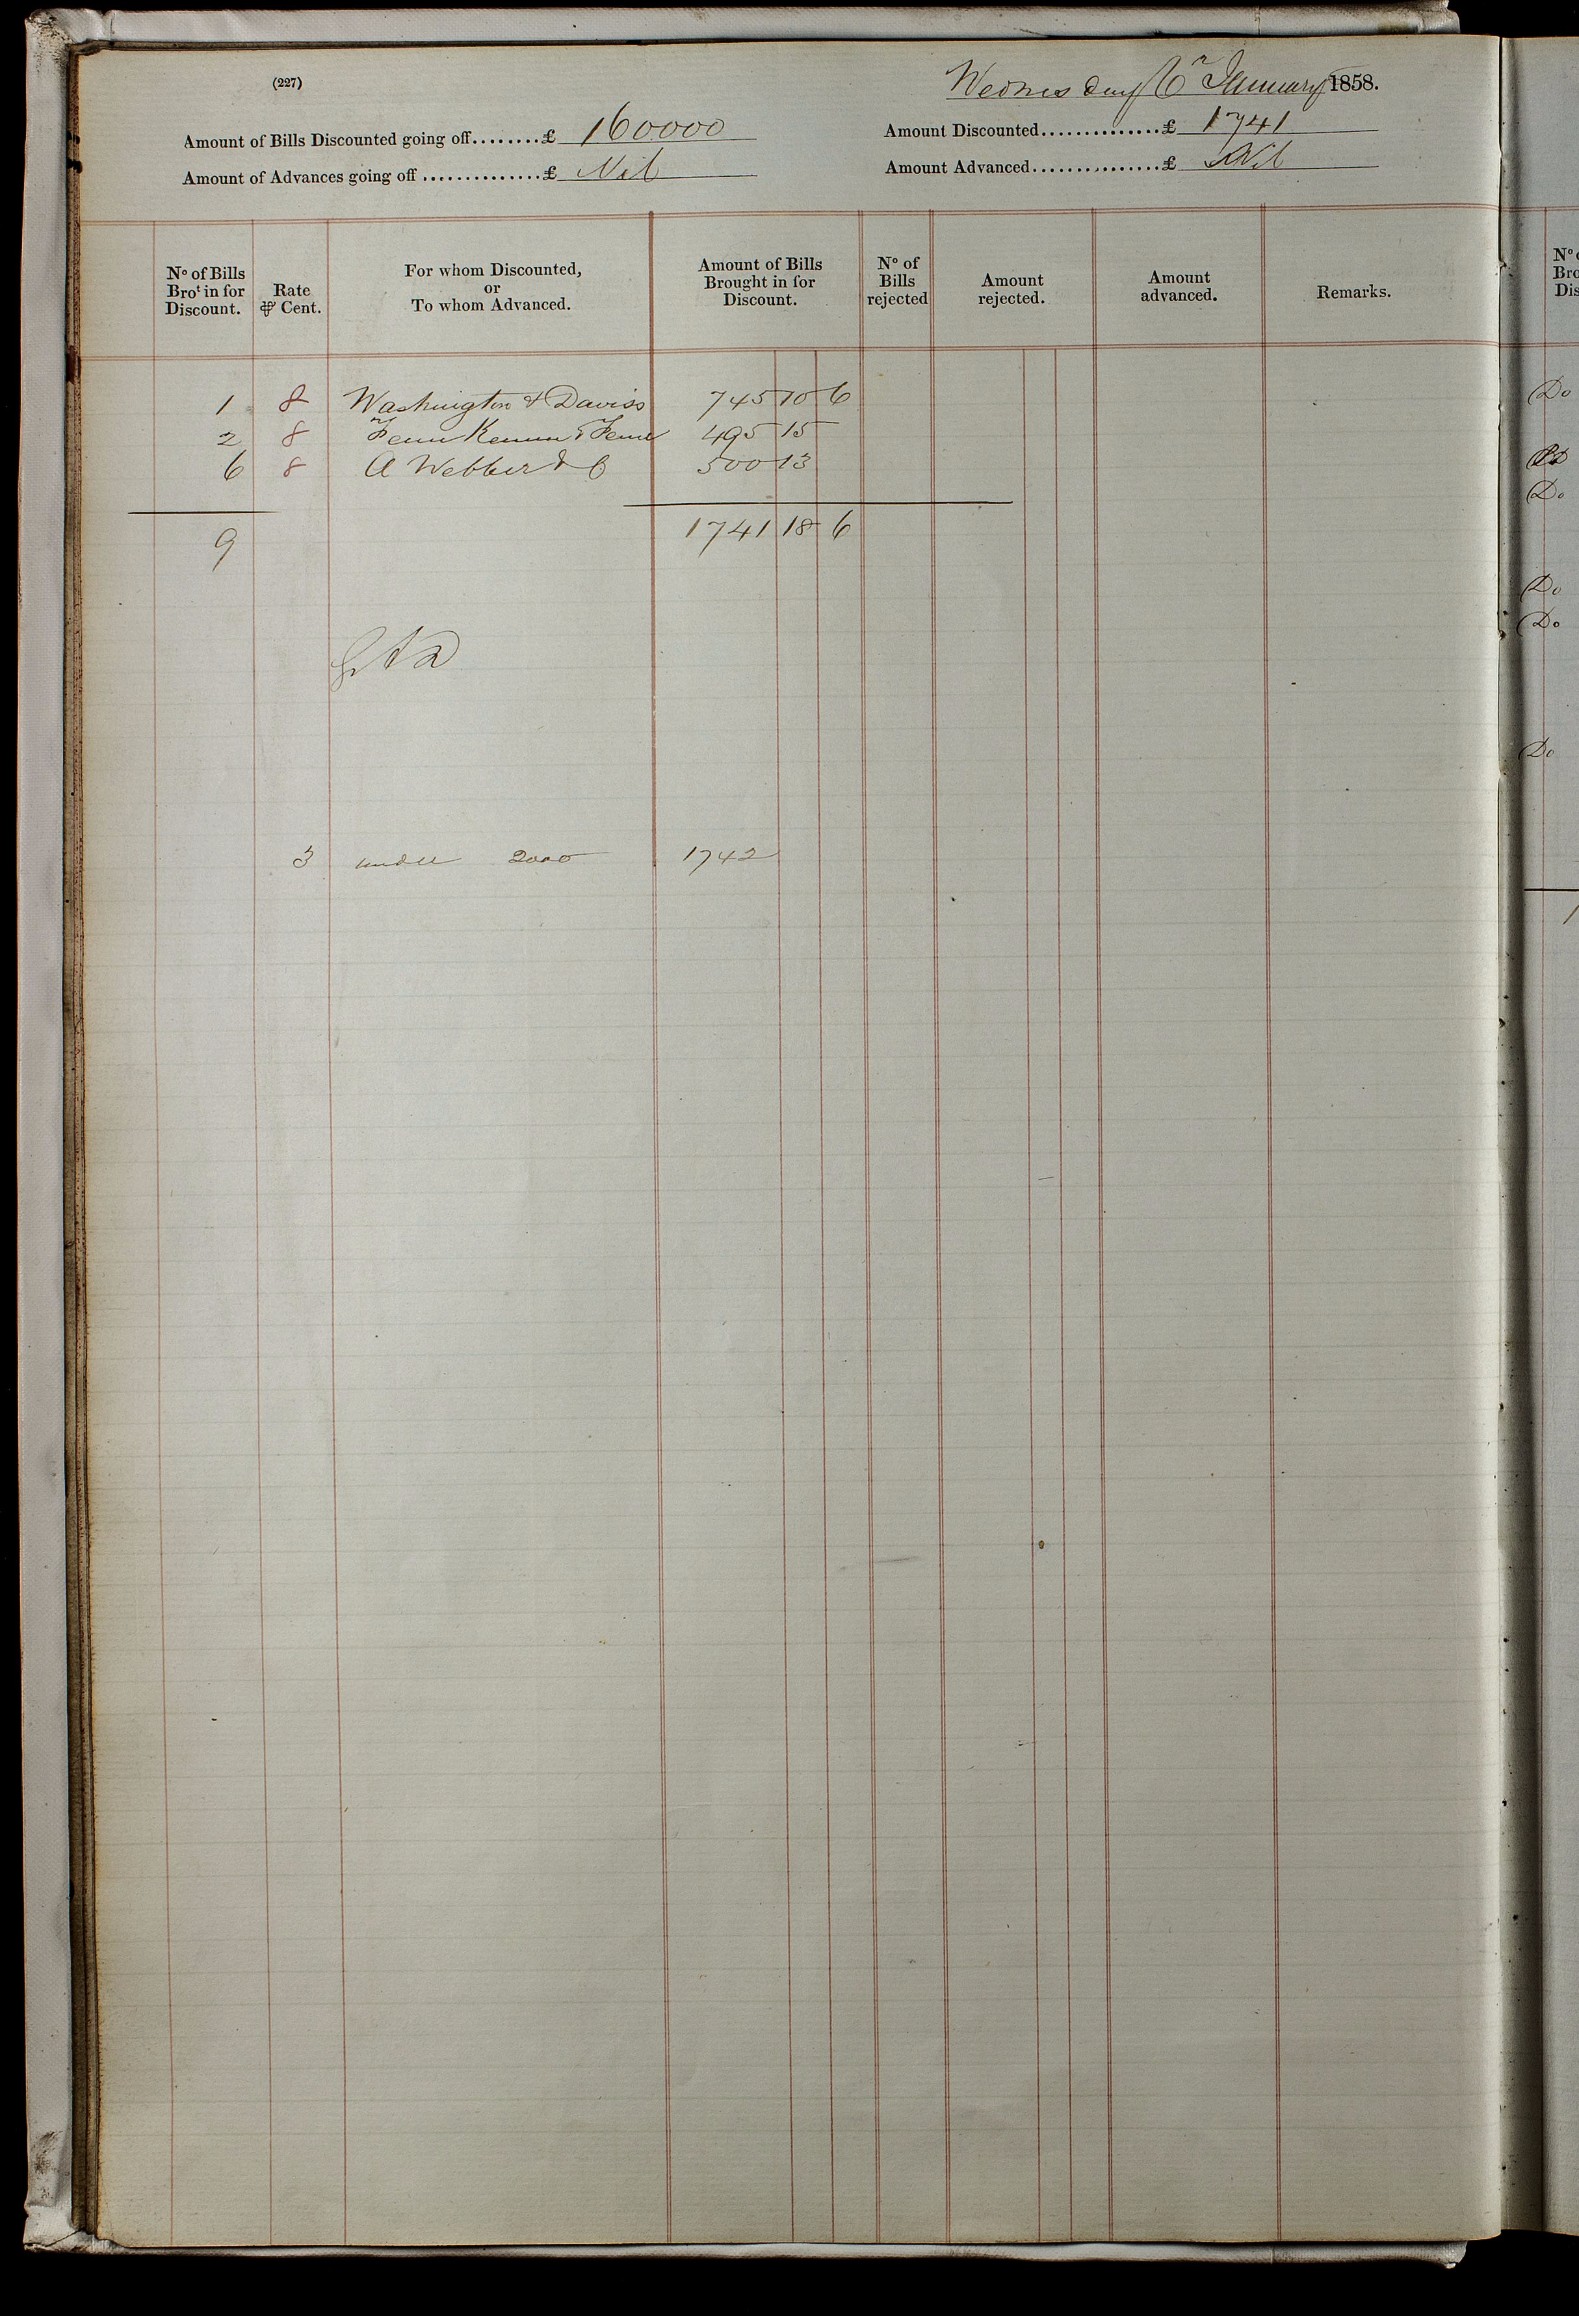 (227)
Wednesday 6 January 1858.
Amount of Bills Discounted going off........£ 160000
Amount Discounted...............£ 1741
Amount of Advances going off...............£ Nil
Amount Advanced...............£ Nil
Nº of Bills Broᵗ in for Discount.
Rate ⅌ Cent.
For whom Discounted, or To whom Advanced.
Amount of Bills Brought in for Discount.
Nº of Bills rejected
Amount rejected.
Amount advanced.
Remarks.
1 8 Washington & Daviss 745 10 6
2 8 Fenn & Fenn 495 15
6 8 A Webber & C 500 13
9 1741 18 6
3 under 2000 1742
Do
Do
Do
Do
Do